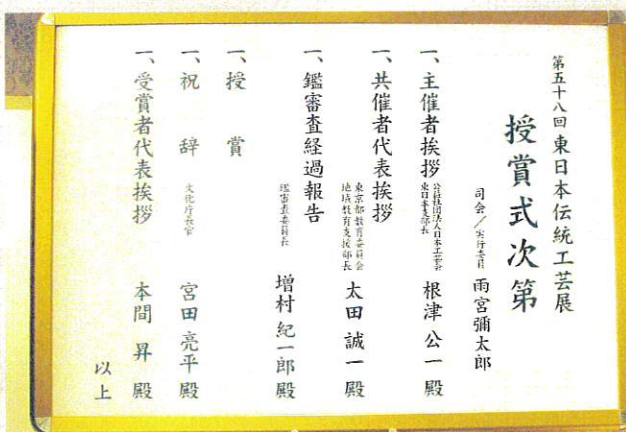 第五十八回 東日本伝統工芸展
授賞式次第
司会／実行委員 雨宮彌太郎
一、主催者挨拶 公益社団法人日本工芸会 東日本支部長 根津公一殿
一、共催者代表挨拶 東京都教育委員会 地域教育支援部長 太田誠一殿
一、鑑審査経過報告 鑑審査委員長 増村紀一郎殿
一、授賞
一、祝辞 文化庁長官 宮田亮平殿
一、受賞者代表挨拶 本間昇殿
以上